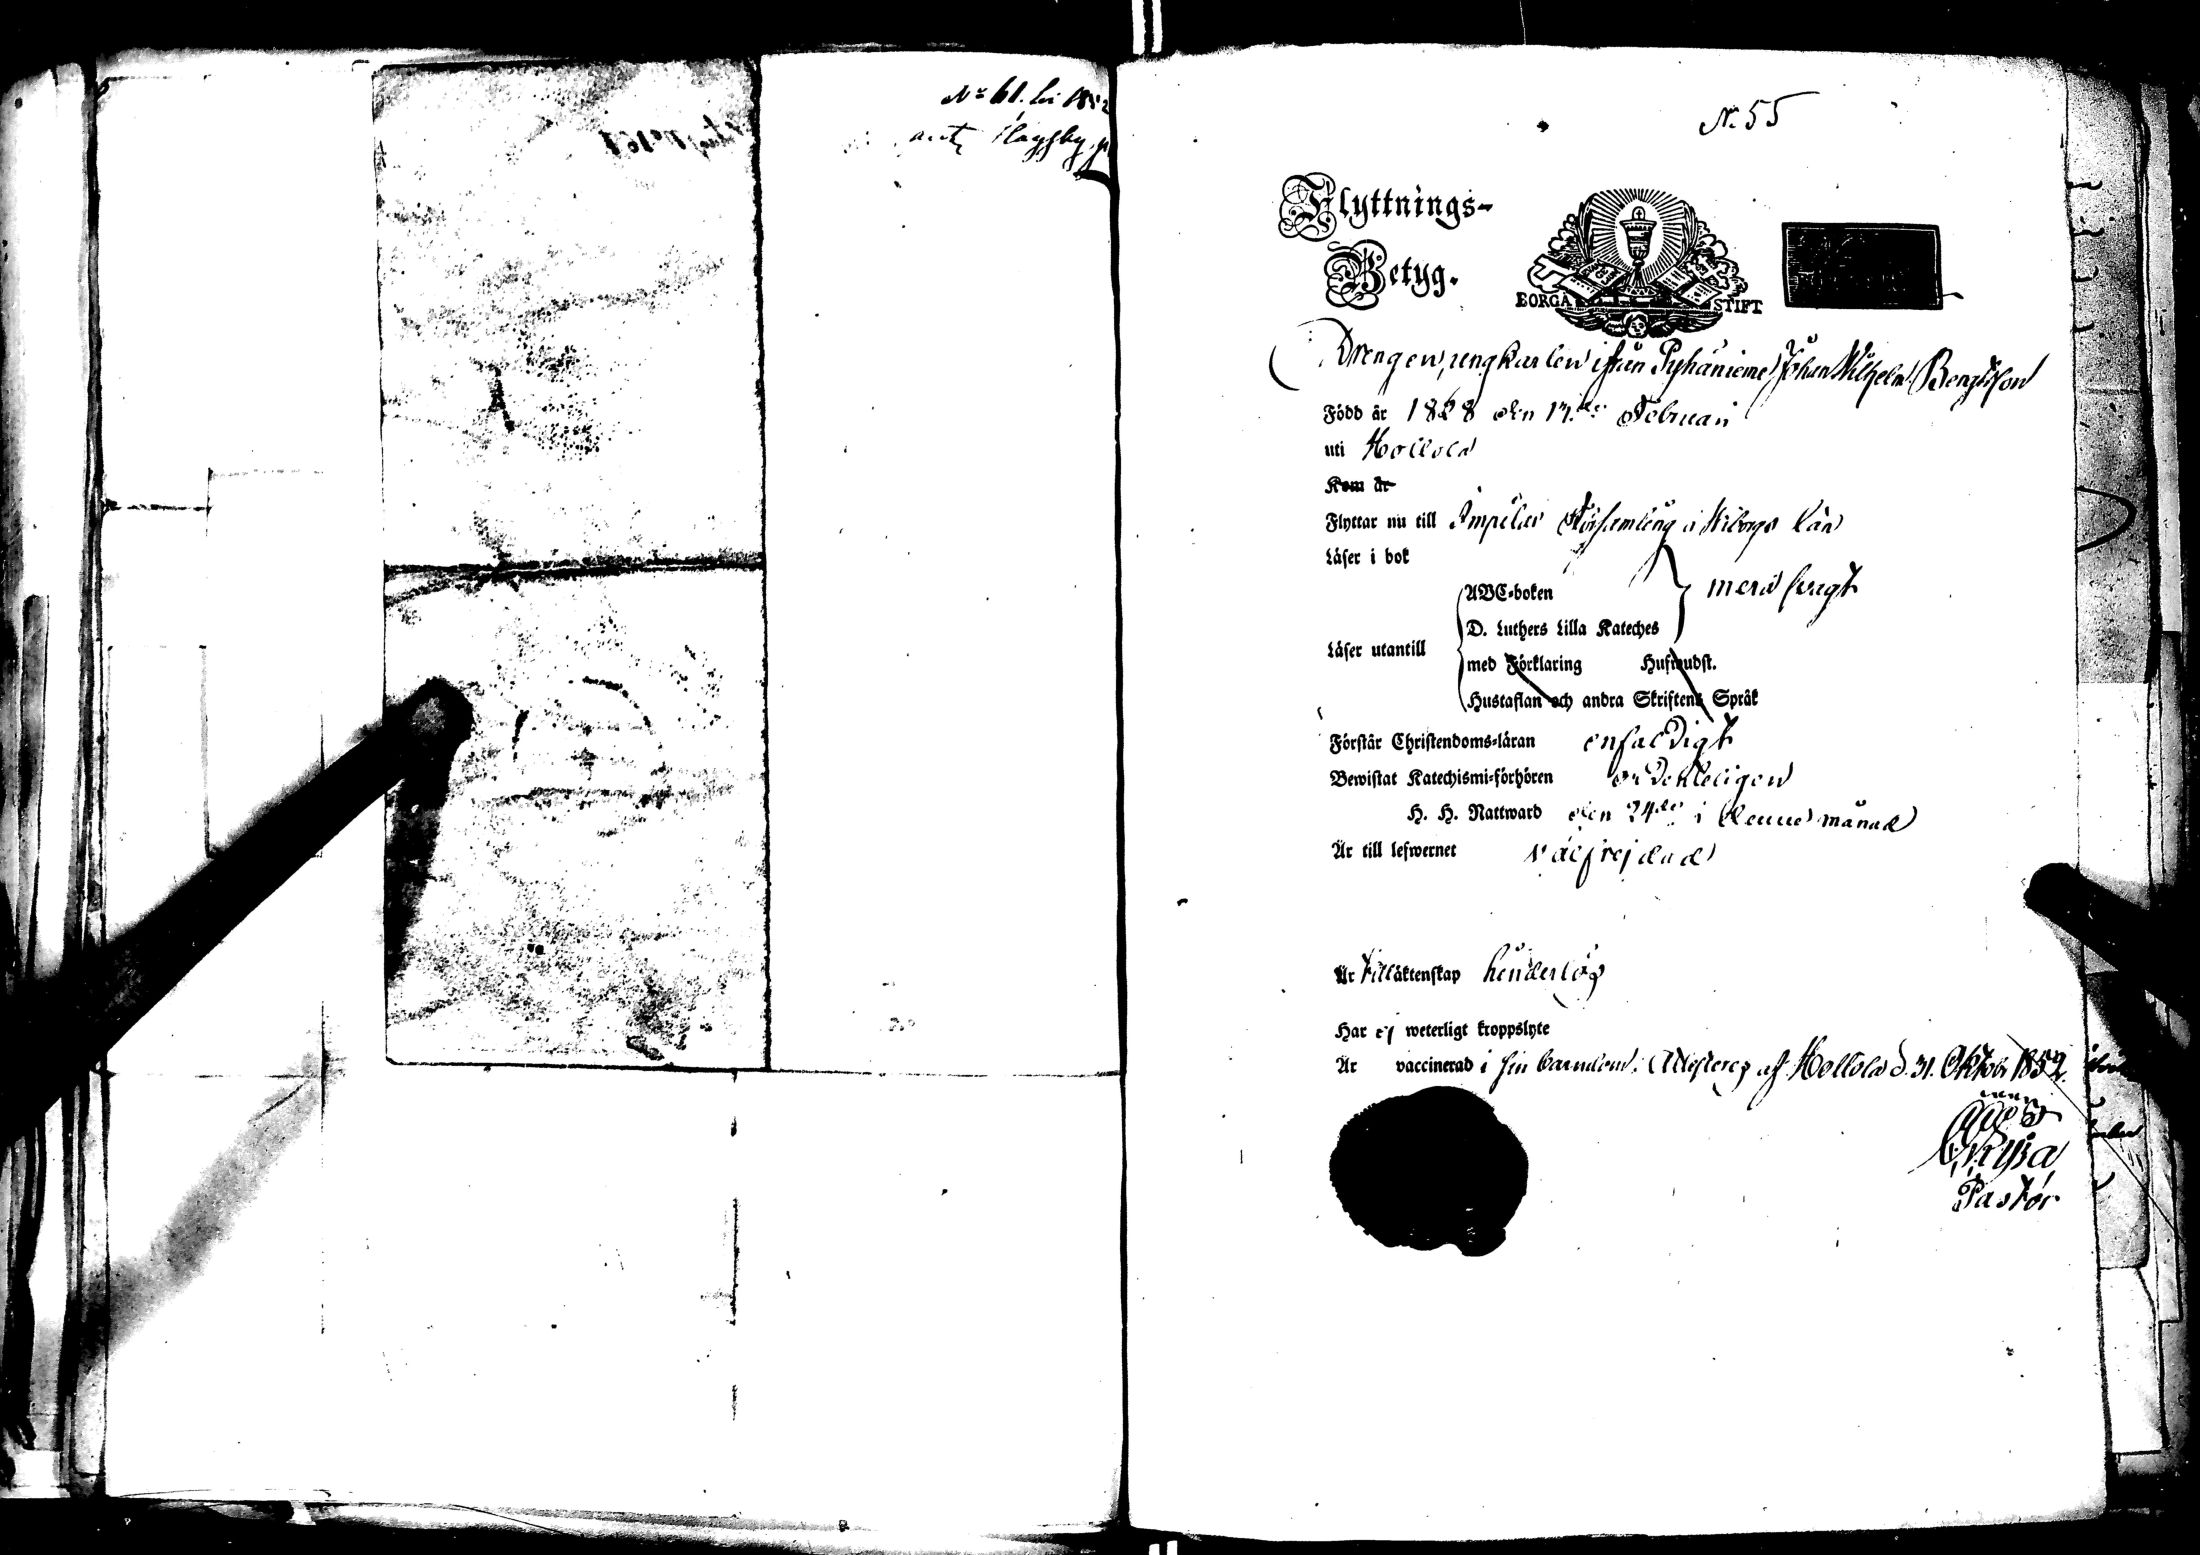 No 61. 1852
N. 55
Flyttnings-
Betyg.
BORGÅ STIFT
Drengen, ungkarlen ifrån Pyhäniemi Johan Wilhelm Bengtsson
Född år 1828 den 17.de Februari
uti Hollola
Kom år
Flyttar nu till Impilax Församling i Wiborgs Län
Läser i bok
ABC-boken
D. Luthers Lilla Kateches
mera svagt
Läser utantill
med Förklaring Husfrudst.
Hustaflan och andra Skriftens Språk
Förstår Christendoms-läran enfaldigt
Bewistat Katechismi-förhören ordentligen
H. H. Nattward den 24de i denne månad
Är till lefwernet välfrejdad
Är till äktenskap hinderlös
Har ej weterligt kroppslyte
Är vaccinerad i sin barndom. Attesterar af Hollola d. 31. Oktob 1852.
Pastor